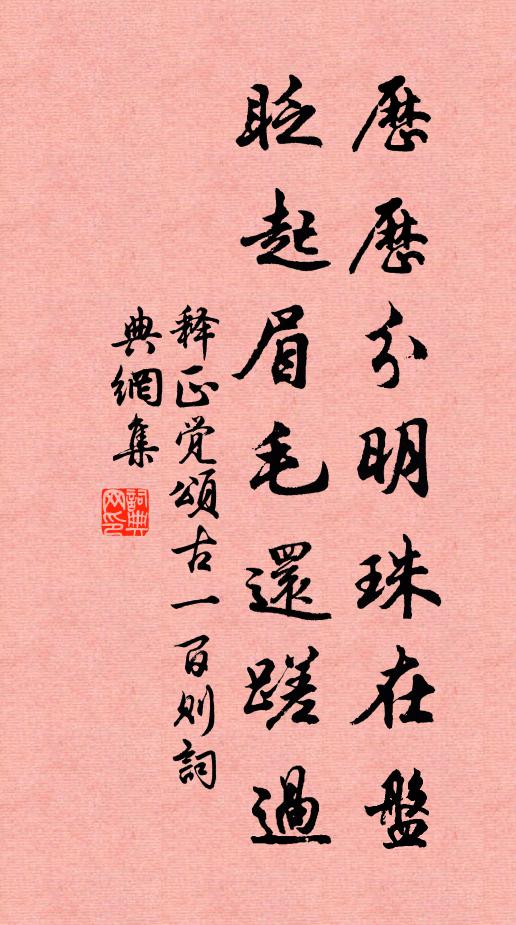 歷歷分明珠在盤
眨起眉毛還蹉過
释正觉頌古一百则詞
典網集
詞典
网印